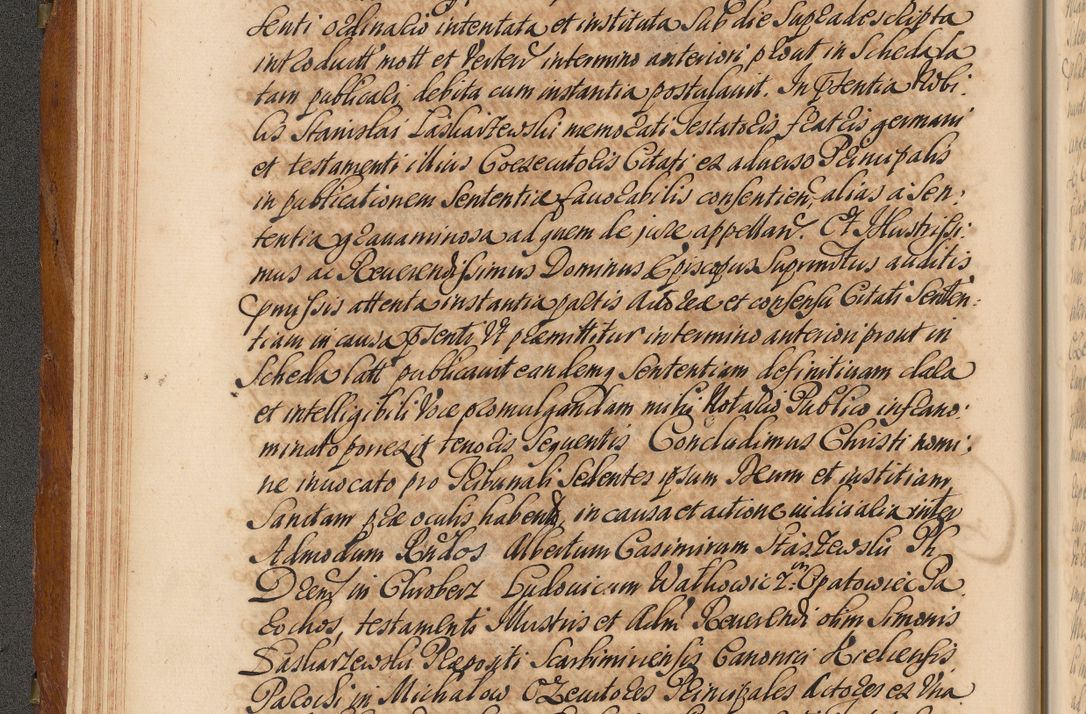 senti ordinario intentata et instituta sub die supradescripta
introductt mott et Verten̄ in termino anteriori, prout in Scheda la
tam publicari, debita cum instantia postulavit. In p̄sentia Nobi:
lis Stanislai Laskarzewski memorati Testatoris, fratris germani
et testamenti illius Coexecutoris Citati ex adverso Principalis
in publicationem Sententiæ favorabilis consentien, alias a Sen:
tentia gravaminosa ad quem de jure appellan. Et Illustrissi:
mus ac Reverendissimus Dominus Episcopus Suprinttus auditis
præmissis attenta instantia partis Actoreæ et consensu Citati Senten:
tiam in causa p̄senti Ut præmittitur in termino anteriori prout in
Scheda latt publicavit eandemq Sententiam definitivam clara
et intelligibili Voce promulgandam mihi Notario Publico infrano:
minato porrexit tenoris Sequentis Concludimus Christi nomi:
ne invocato pro Tribunali Sedentes ipsum Deum et iustitiam
Sanctam præ oculis habentes, in causa et actione iudicialia inter
Admodum Rndos Albertum Casimirum Staszewski Ph
Dren in Chroberz Ludovicum Walkowicz in Opatowiec Pa
rochos, testamenti Illustris et Adm Reverendi olim Simonis
Laskarzewski Præpositi Scarbimiriensis Canonici Kielcensis,
Parochi in Michalow Executores Principales Actores ex Una